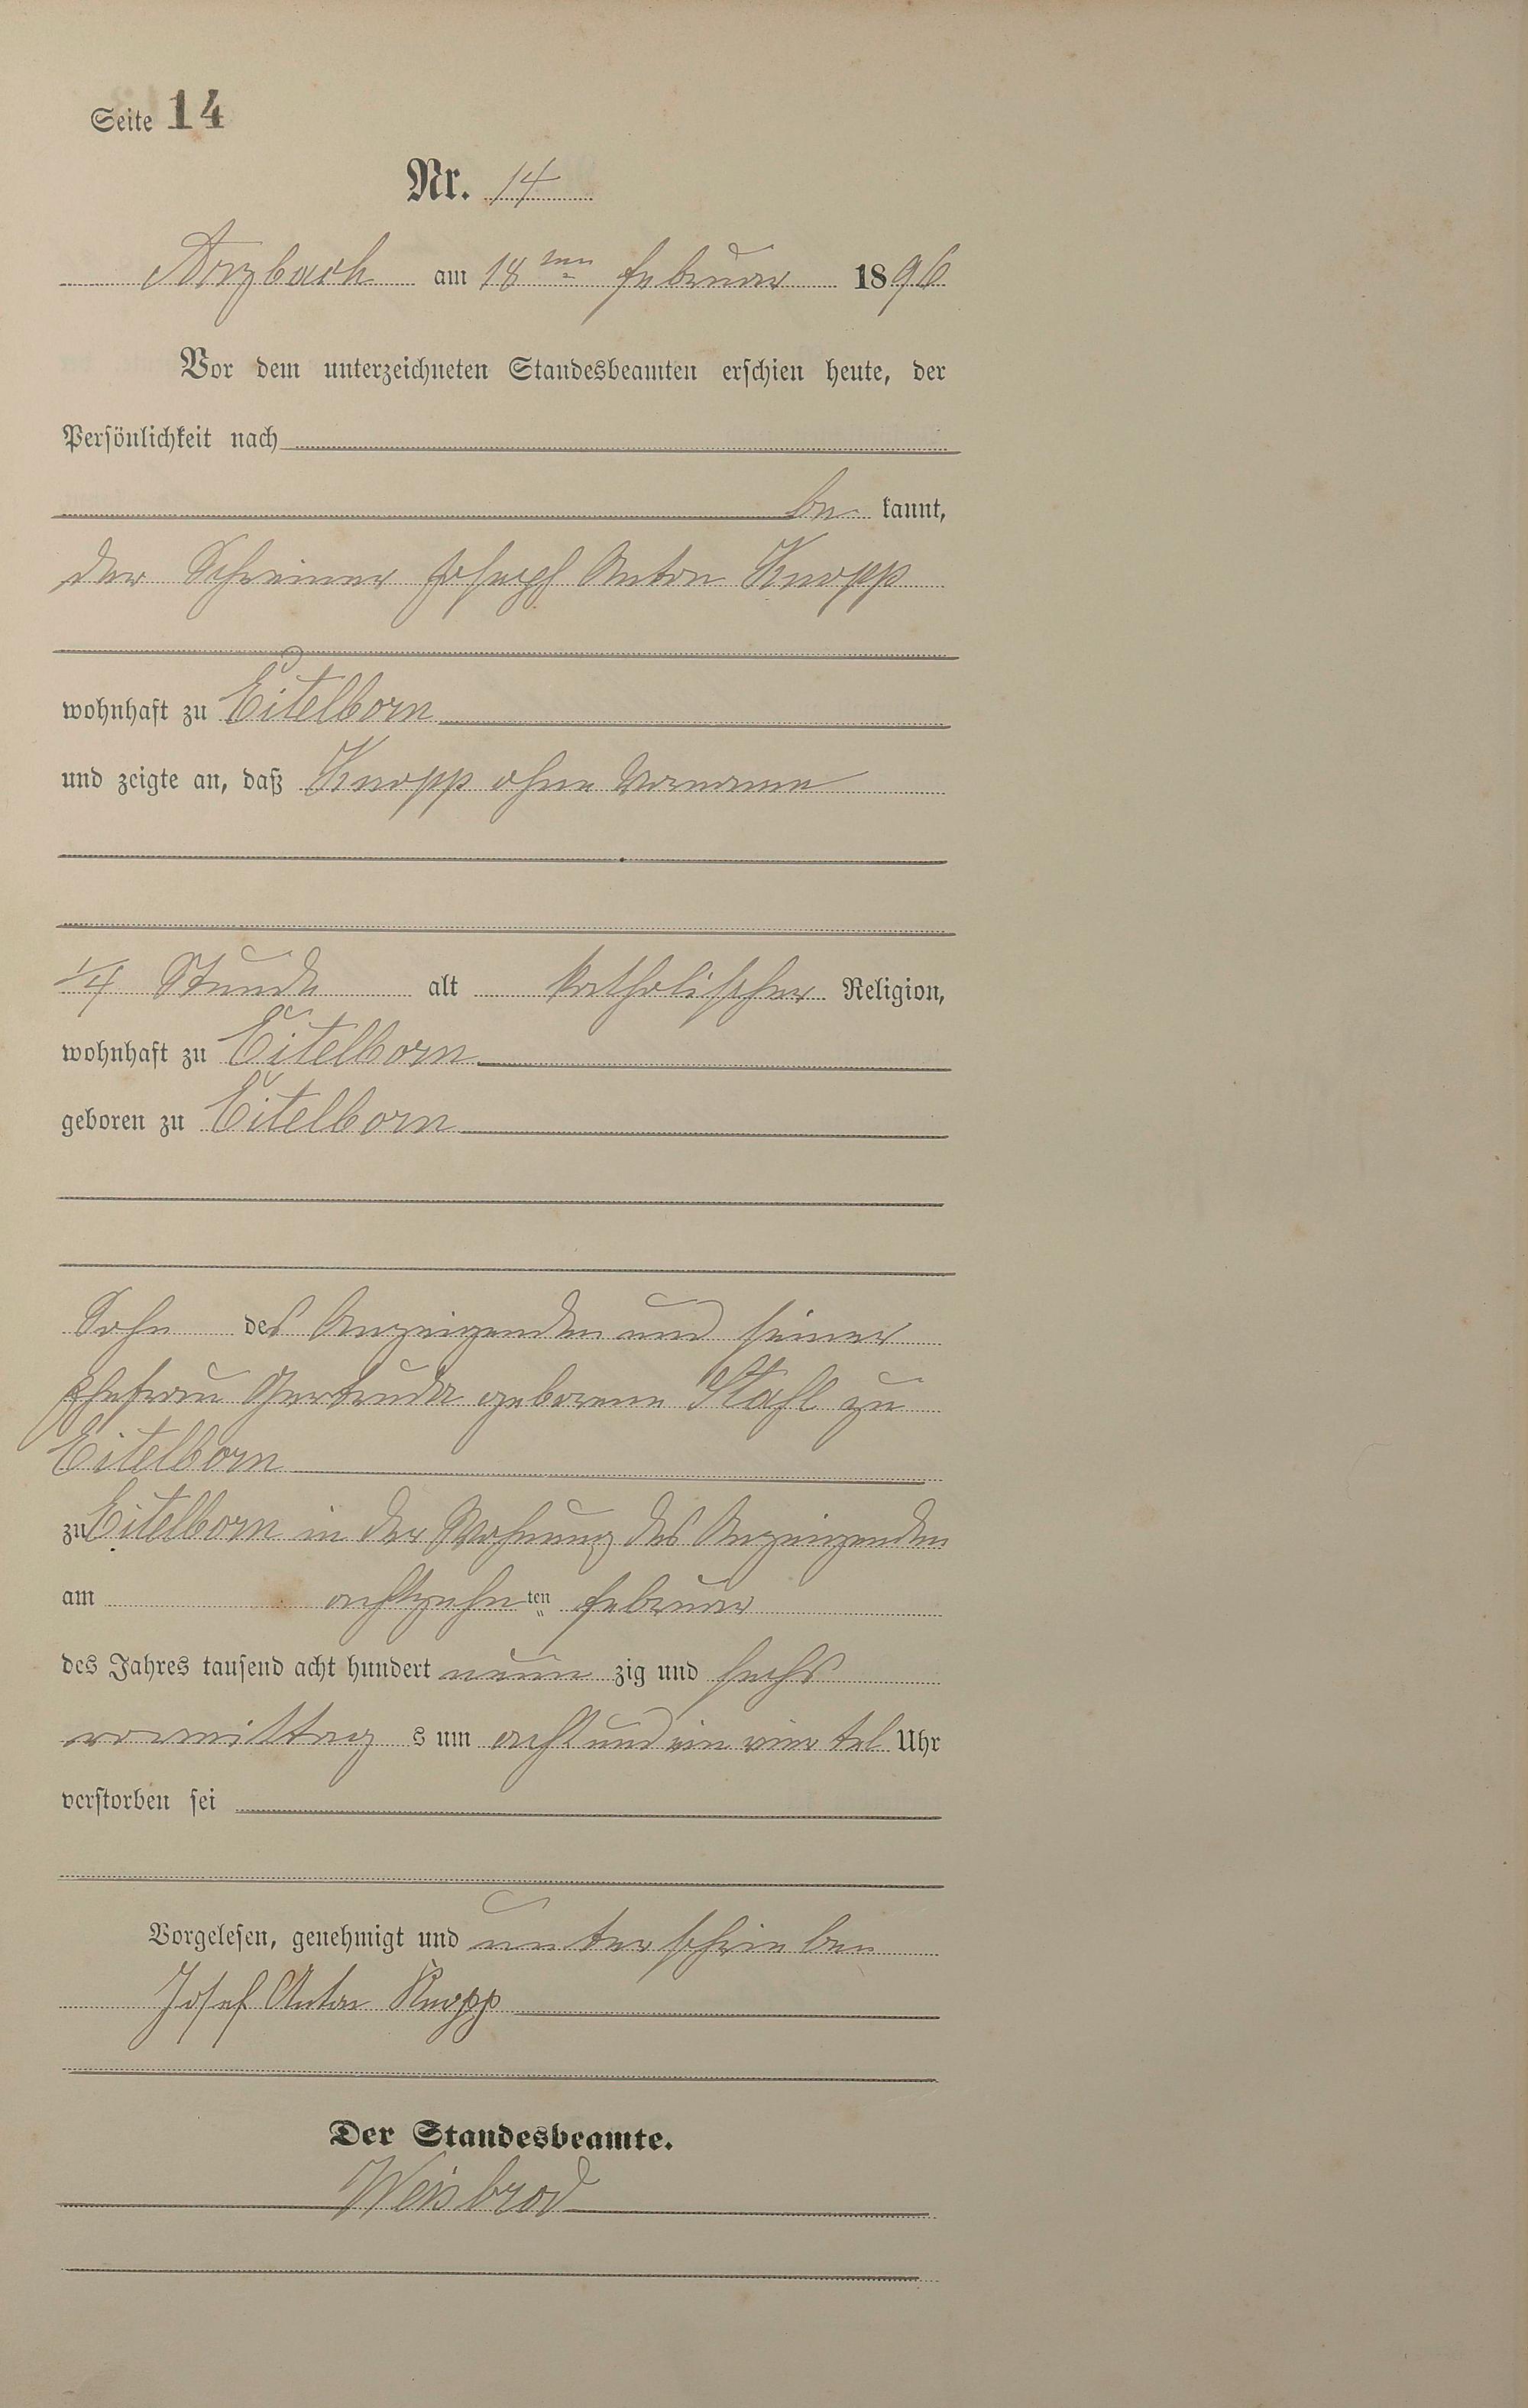 Seite 14
Nr. 14
Arzbach am 18ten Februar 1896
Vor dem unterzeichneten Standesbeamten erschien heute, der
Persönlichkeit nach
be kannt,
der Schreiner Joseph Anton Knopp
wohnhaft zu Eitelborn
und zeigte an, daß Knopp ohne Vorname
1/4 Stunde alt katholischer Religion,
wohnhaft zu Eitelborn
geboren zu Eitelborn
Sohn des Anzeigenden und seiner
Ehefrau Gertruda geborene Stahl zu
Eitelborn
zu Eitelborn in der Wohnung des Anzeigenden
am achtzehnten Februar
des Jahres tausend acht hundert neun zig und sechs
vormittag s um acht und ein viertel Uhr
verstorben sei
Vorgelesen, genehmigt und unterschrieben
Josef Anton Knopp
Der Standesbeamte.
Weisbrod